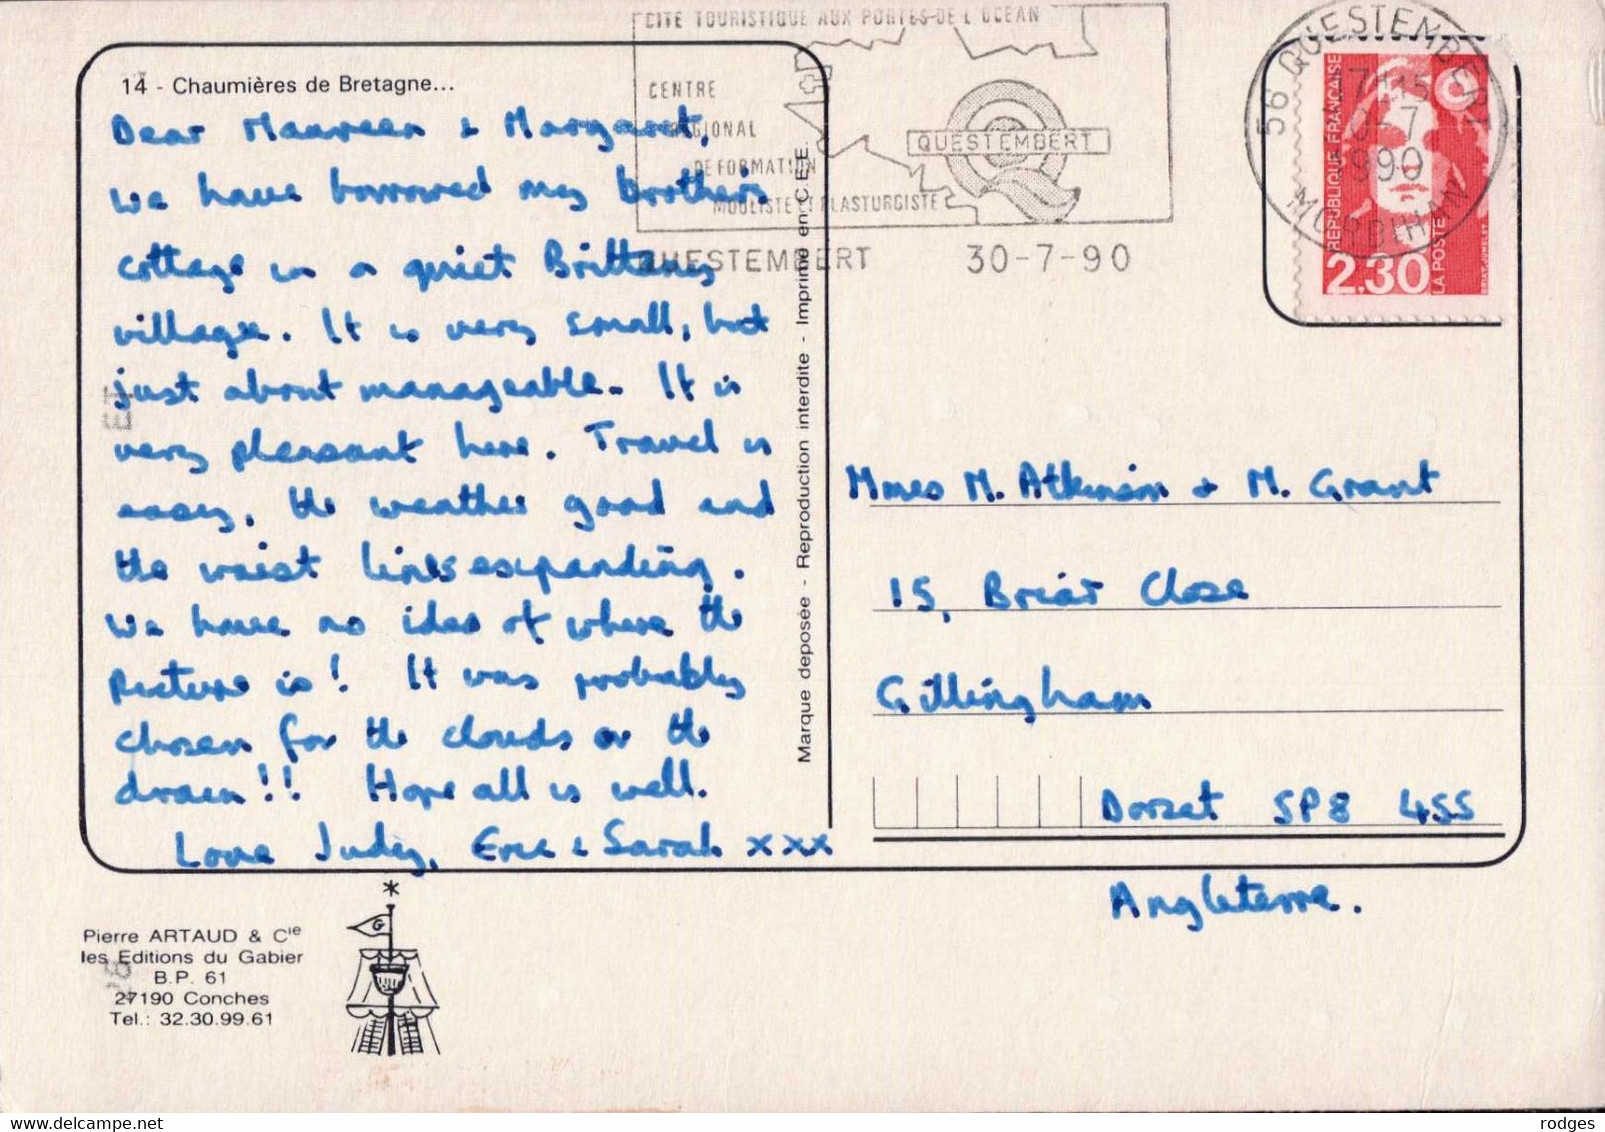 CITE TOURISTIQUE AUX PORTES-DE L'OCEAN
CENTRE
REGIONAL
DE FORMATION
MOULISTE ET PLASTURGISTE
QUESTEMBERT
QUESTEMBERT 30-7-90
56 QUESTEMBERT
MORBIHAN
990
REPUBLIQUE FRANÇAISE
2.30
LA POSTE
14 - Chaumières de Bretagne...
Dear Maureen & Margaret,
We have borrowed my brother's
cottage in a quiet Brittany
village. It is very small, but
just about manageable. It is
very pleasant here. Travel is
easy, the weather good and
the waist lines expanding.
We have no idea of where the
picture is! It was probably
chosen for the clouds or the
drain!! Hope all is well.
Love Judy, Eric & Sarah xxx
Marque deposée - Reproduction interdite - Imprimé en C.E.E.
Mmes M. Atkinson & M. Grant
15, Briar Close
Gillingham
Dorset SP8 4SS
Angleterre.
ET
Pierre ARTAUD & Cie
les Editions du Gabier
B.P. 61
27190 Conches
Tel.: 32.30.99.61
G
rodges